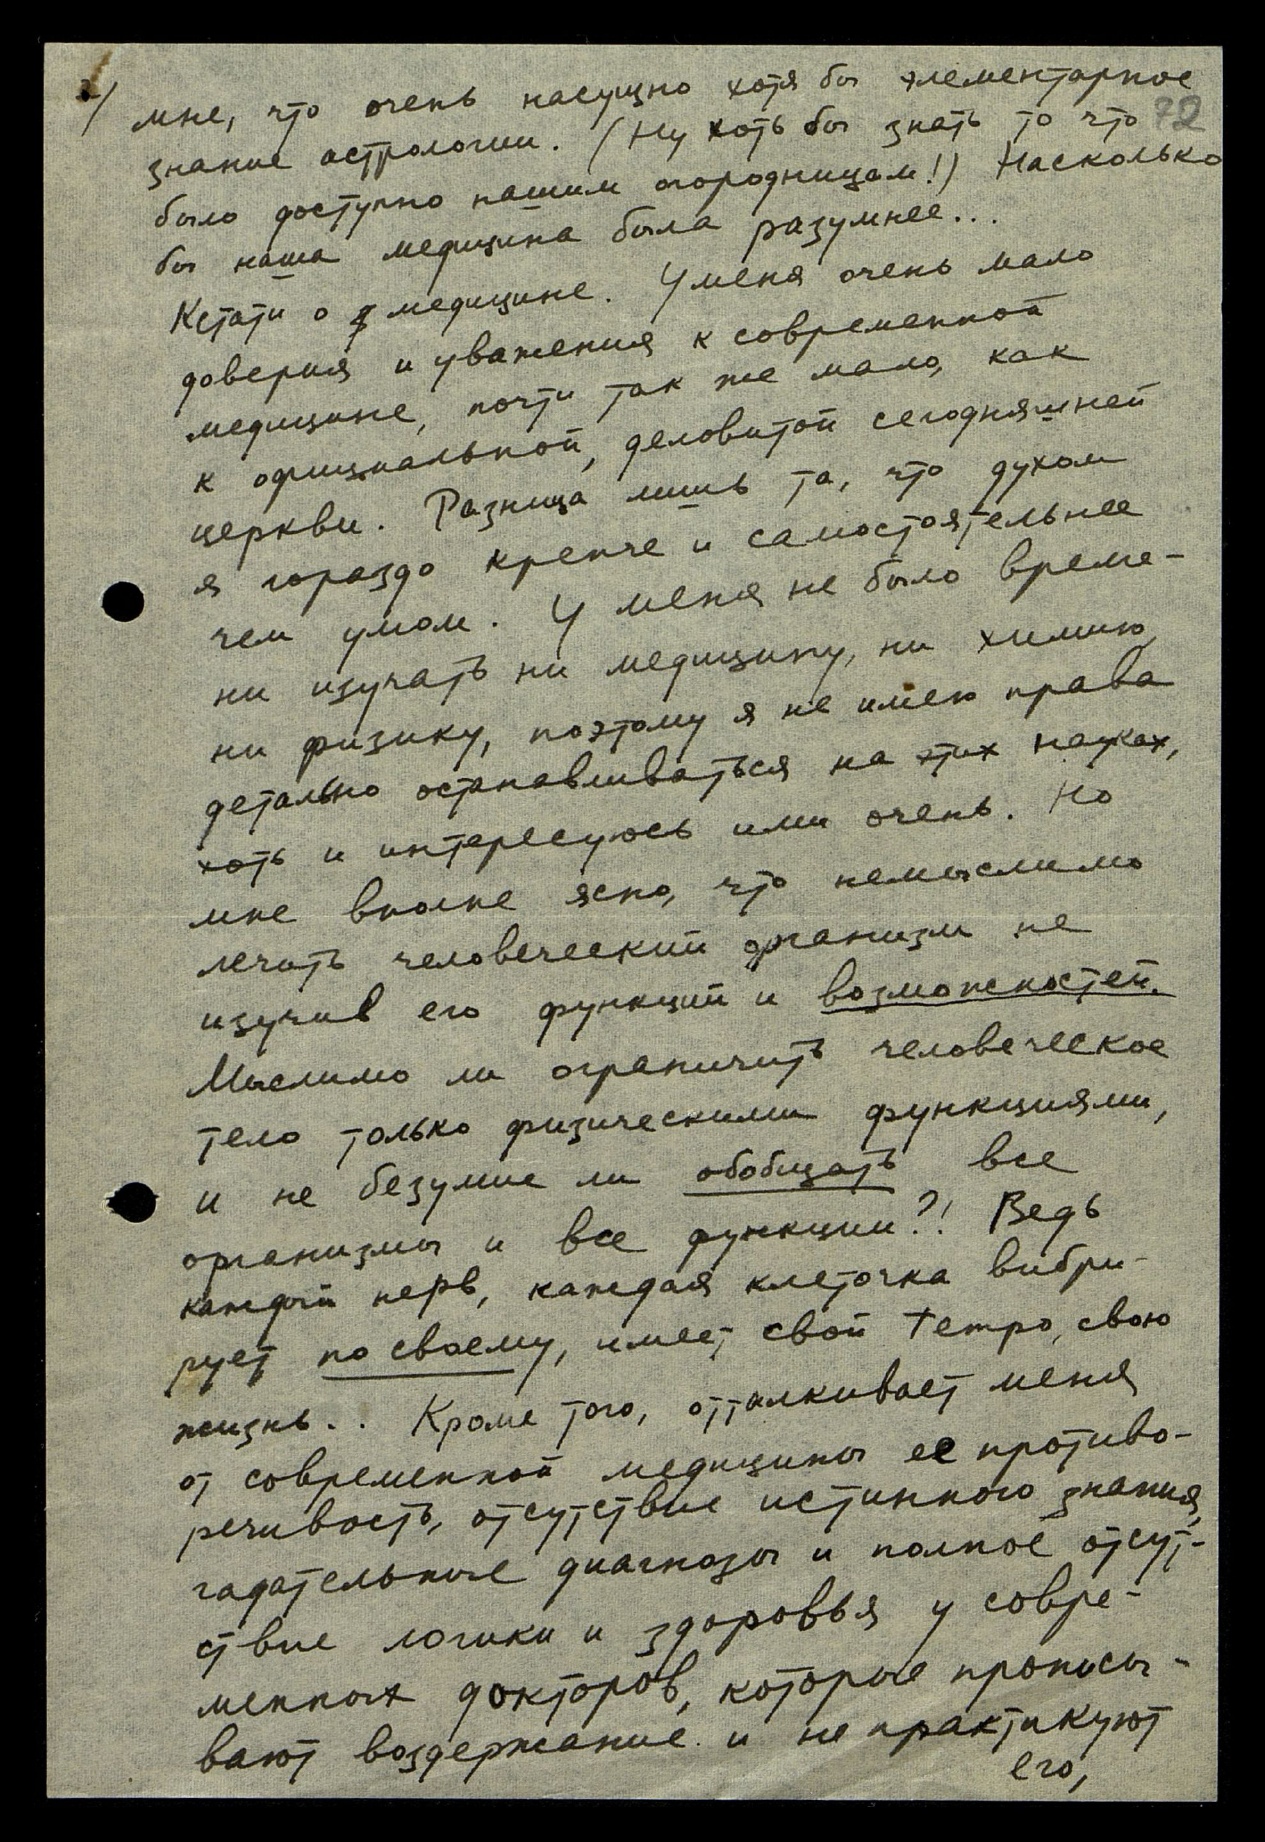 2/ мне, что очень насущно хотя бы элементарное
72
знание астрологии. (Ну хоть бы знать то что
было доступно нашим огородницам!) Насколько
бы наша медицина была разумнее...
Кстати о медицине. У меня очень мало
доверия и уважения к современной
медицине, почти так же мало, как
к официальной, деловитой сегодняшней
церкви. Разница лишь та, что духом
я гораздо крепче и самостоятельнее
чем умом. У меня не было време-
ни изучать ни медицину, ни химию,
ни физику, поэтому я не имею права
детально останавливаться на этих науках,
хоть и интересуюсь ими очень. Но
мне вполне ясно, что немыслимо
лечить человеческий организм не
изучив его функций и возможностей.
Мыслимо ли ограничить человеческое
тело только физическими функциями,
и не безумие ли обобщать все
организмы и все функции?! Ведь
каждый нерв, каждая клеточка вибри-
рует по своему, имеет свой темпо, свою
жизнь.. Кроме того, отталкивает меня
от современной медицины ее противо-
речивость, отсутствие истинного знания,
гадательные диагнозы и полное отсут-
ствие логики и здоровья у совре-
менных докторов, которые прописы-
вают воздержание и не практикуют
его,